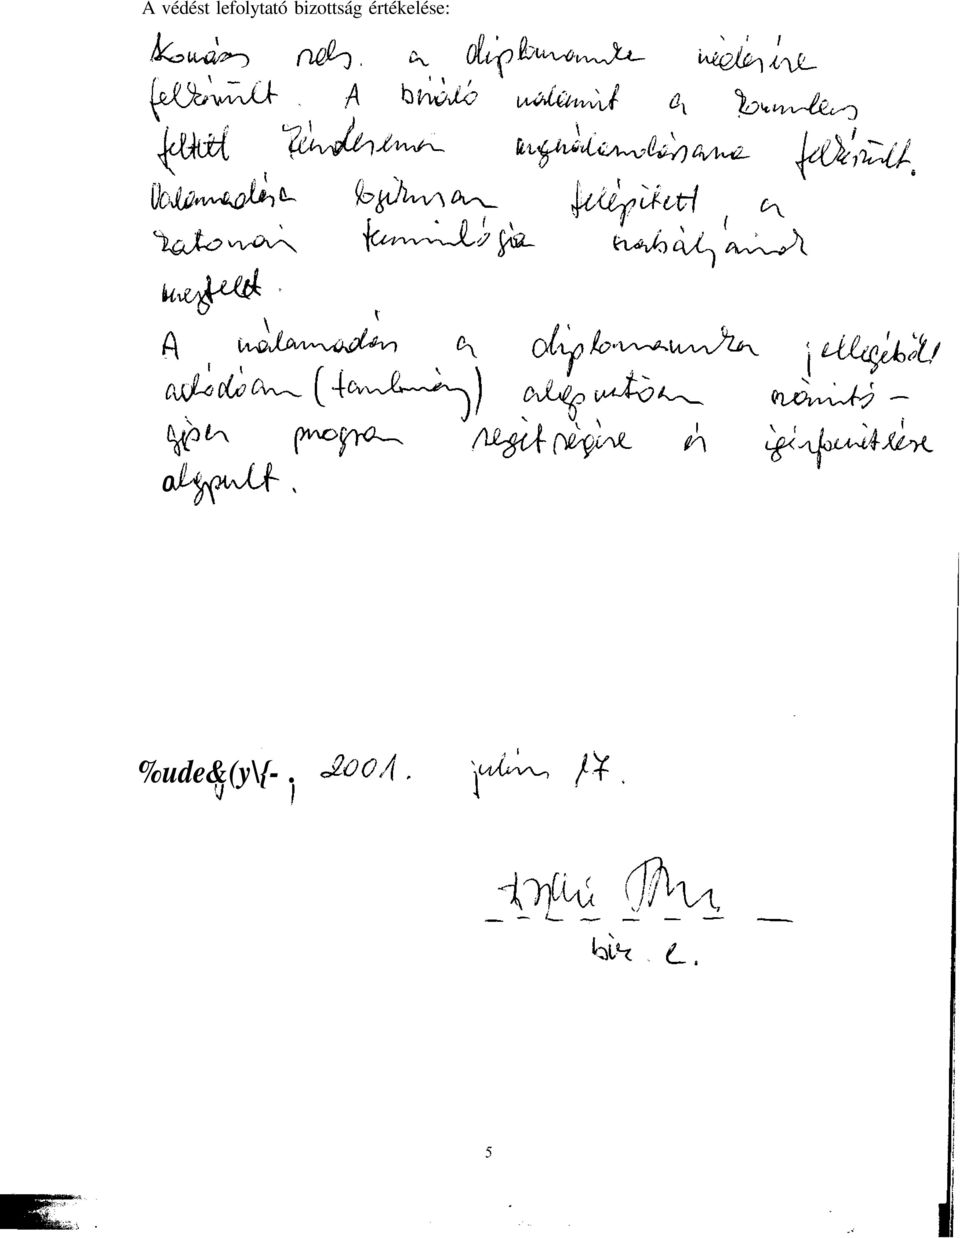 A védést lefolytató bizottság értékelése:
Kovács a diplomamunka védésére
felkészült. A bíráló valamint a
feltett kérdésekre megválaszolására felkészült.
Válaszadása logikusan felépített, a
katonai terminológia szabályainak
megfelelt.
A válaszadás a diplomamunka jellegéből
adódóan (tanulmány) alapvetően számító-
gépes program segítségére és ismertetésére
alapult.
%ude&(y\{- , 2001. július 17.
bir. e.
5